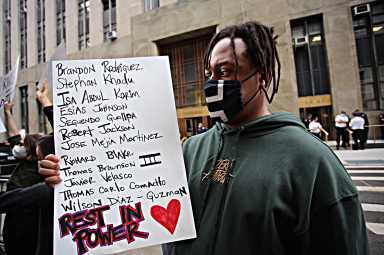 Brandon Rodriguez
Stephan Khadu
Isa Abdul Karim
Esias Johnson
Segundo Guallpa
Robert Jackson
Jose Mejia Martinez
Richard Blake III
Thomas Braunson III
Javier Velasco
Thomas Carlo Camacho
Wilson Diaz-Guzman
REST IN
POWER